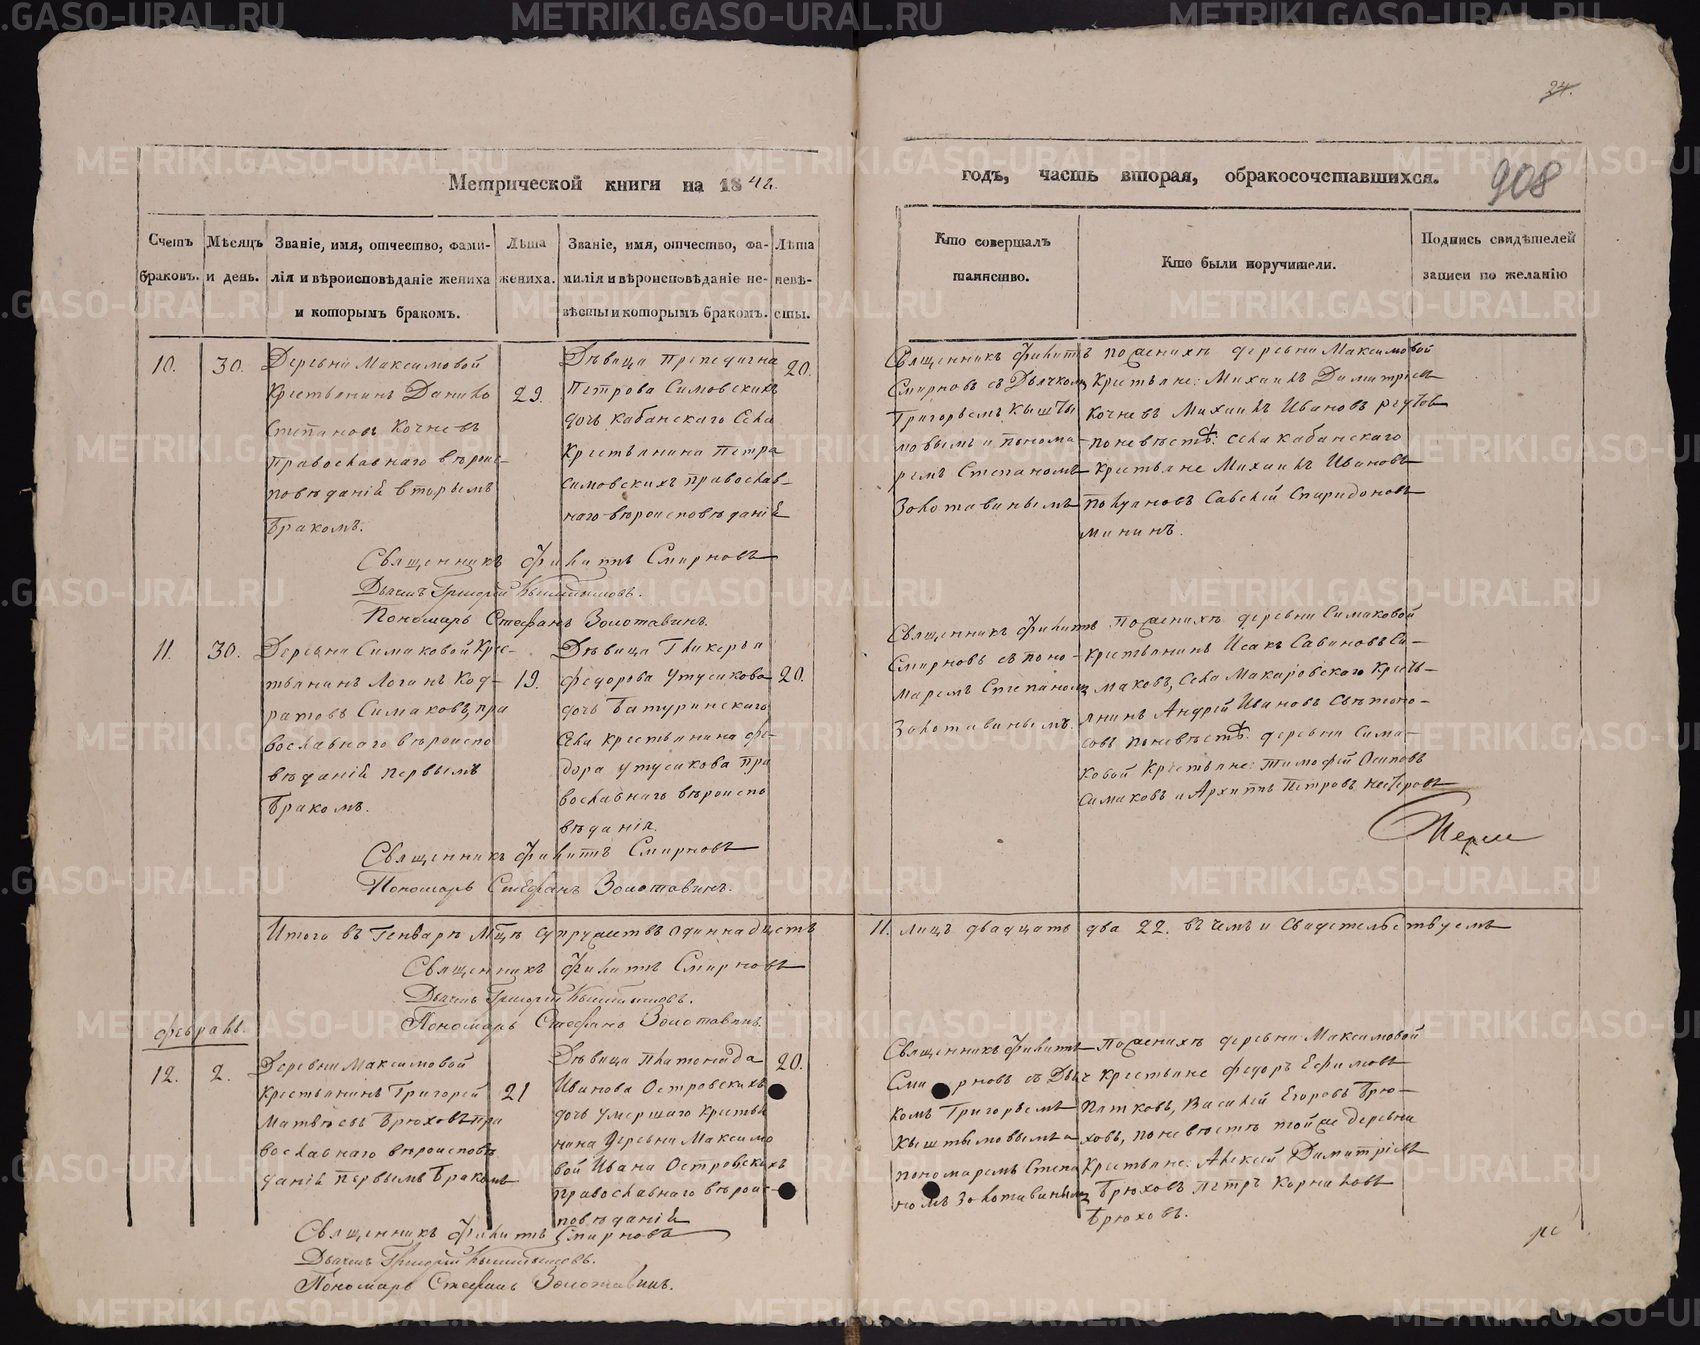 24.
908
Метрической книги на 1842.
годъ, часть вторая, обракосочетавшихся.
Счетъ браковъ.
Мѣсяцъ и день.
Званіе, имя, отчество, фами-
лія и вѣроисповѣданіе жениха
и которымъ бракомъ.
Лѣта жениха.
Званіе, имя, отчество, фа-
милія и вѣроисповѣданіе не-
вѣсты и которымъ бракомъ.
Лѣта невѣ-
сты.
Кто совершалъ
таинство.
Кто были поручители.
Подпись свидѣтелей
записи по желанію
10.
30.
Деревни Максимовой
Крестьянинъ Данило
Степановъ Кочневъ
православнаго вѣроис-
повѣданій вторымъ
бракомъ.
29.
Дѣвица Препедигна
Петрова Симовскихъ
дочь Кабанскаго Села
Крестьянина Петра
Симовскихъ православ-
наго вѣроисповѣданій
20.
Священникъ Филиппъ
Смирновъ съ Дьячкомъ
Григорьемъ Кышты
мовымъ и понома-
ремъ Степаномъ
Золотавинымъ
по женихѣ деревни Максимовой
Крестьяне: Михаилъ Димитріевъ
Кочневъ Михаилъ Ивановъ
по невѣстѣ: села Кабанскаго
Крестьяне Михаилъ Ивановъ
Савелій Спиридоновъ
Мининъ.
Священникъ Филиппъ Смирновъ
Дьячекъ Григорій Кыштымовъ.
Пономарь Стефанъ Золотавинъ.
11.
30.
Деревни Симаковой Крес-
тьянинъ Логинъ Код-
ратовъ Симаковъ, пра
вославнаго вѣроиспо
вѣданій первымъ
бракомъ.
19.
Дѣвица Гликерья
Федорова Утусикова
дочь Батуринскаго
Села крестьянина Фе-
дора Утусикова пра
вославнаго вѣроиспо
вѣданія.
20.
Священникъ Филиппъ
Смирновъ съ поно-
маремъ Степаномъ
Золотавинымъ.
По женихѣ деревни Симаковой
Крестьянинъ Исакъ Савиновъ Си-
маковъ, Села Макаровского Кресть-
янинъ Андрей Ивановъ Свѣтоно-
совъ по невѣстѣ: деревни Сима-
ковой Крестьяне: Тимофей Осиповъ
Симаковъ и Архиппъ Петровъ
Священникъ Филиппъ Смирновъ
Пономарь Стефанъ Золотавинъ.
Итого въ Генварѣ Мцѣ супружествъ одиннадцеть
11. лицъ двадцать два 22. въ чемъ и Свидетельствуемъ
Священникъ Филиппъ Смирновъ
Дьячекъ Григорій Кыштымовъ.
Пономарь Стефанъ Золотавинъ.
Февраль.
12.
2.
Деревни Максимовой
Крестьянинъ Григорей
Матвѣевъ Брюховъ пра
вославнаго вѣроисповѣ
даній первымъ бракомъ
21
Дѣвица Платонида
Иванова Островскихъ
дочь умершаго крестья
нина деревни Максимо
вой Ивана Островскихъ
православнаго вѣроис-
повѣданій
20.
Священникъ Филиппъ
Смирновъ съ Дьяч
комъ Григорьемъ
Кыштымовымъ и
пономаремъ Степа
номъ Золотавинымъ
По женихѣ деревни Максимовой
Крестьяне Федоръ Ефимовъ
Пятковъ, Василей Егоровъ Брю-
ховъ, по невѣстѣ той же деревни
Крестьяне: Алексей Димитріевъ
Брюховъ Петръ Корниловъ
Брюховъ.
Священникъ Филиппъ Смирновъ
Дьячекъ Григорій Кыштымовъ.
Пономарь Стефанъ Золотавинъ.
METRIKI.GASO-URAL.RU